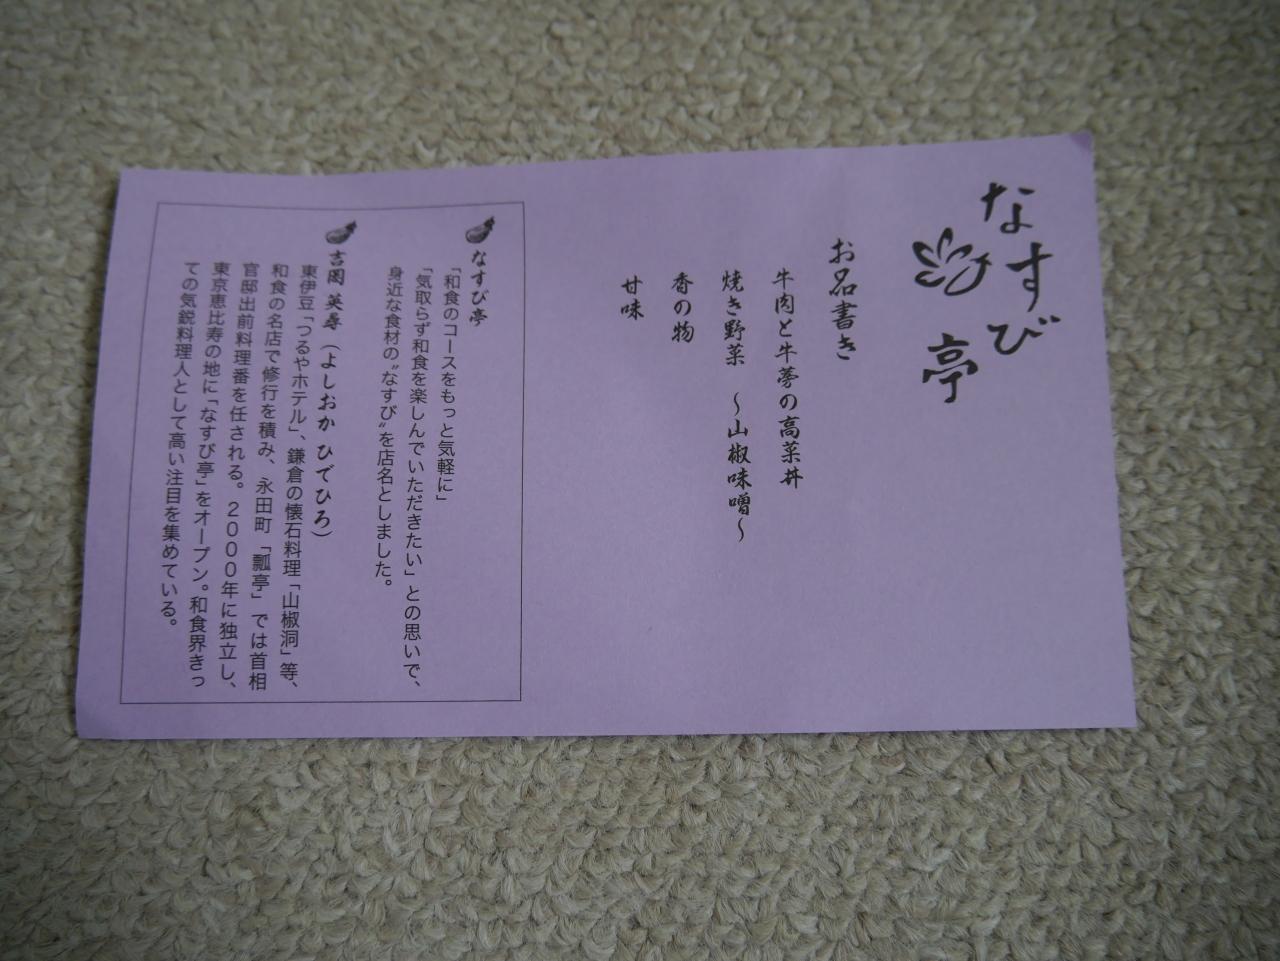 なすび亭
お品書き
牛肉と牛蒡の高菜丼
焼き野菜 〜山椒味噌〜
香の物
甘味
なすび亭
「和食のコースをもっと気軽に」
「気取らず和食を楽しんでいただきたい」との思いで、
身近な食材の〝なすび〟を店名としました。
吉岡 英尋（よしおか ひでひろ）
東伊豆「つるやホテル」、鎌倉の懐石料理「山椒洞」等、
和食の名店で修行を積み、永田町「瓢亭」では首相
官邸出前料理番を任される。2000年に独立し、
東京恵比寿の地に「なすび亭」をオープン。和食界きっ
ての気鋭料理人として高い注目を集めている。